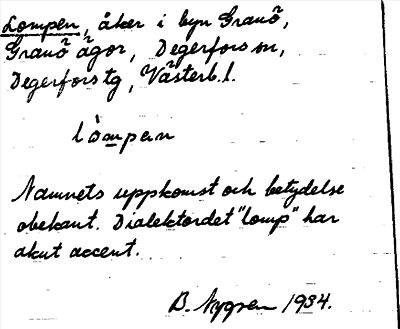 Lompen, åker i byn Granö,
Granö ägor, Degerfors sn,
Degerfors tg, Västerb. l.
lòmpen
Namnets uppkomst och betydelse
obekant. Dialektordet "lomp" har
akut accent.
B. Nygren 1934.